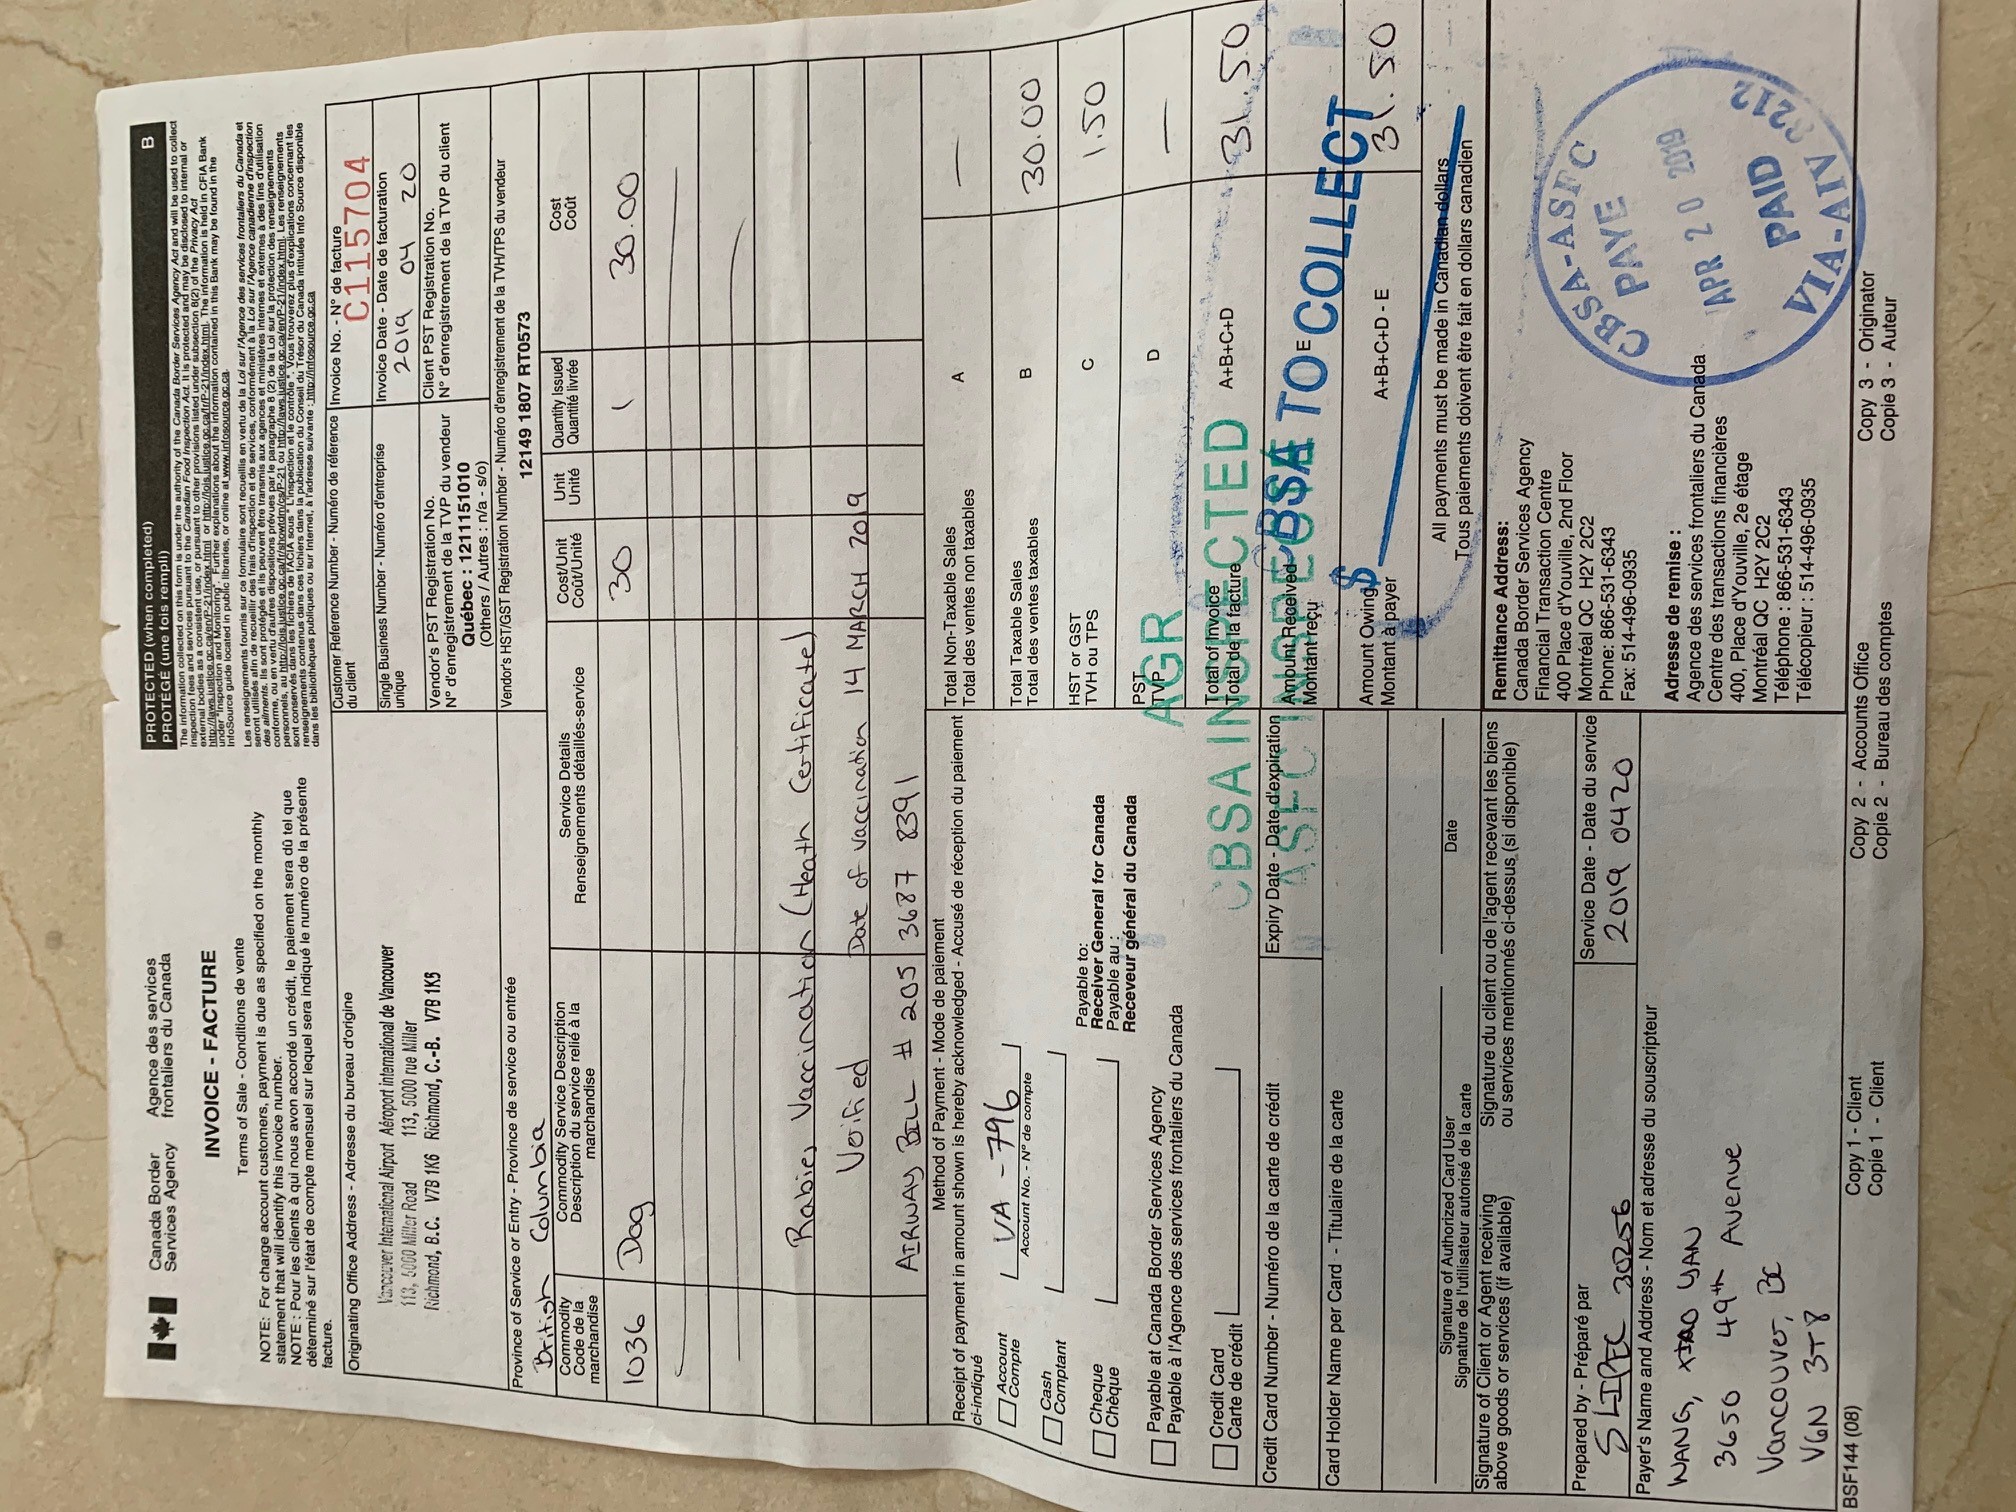 Canada Border Services Agency
Agence des services frontaliers du Canada
INVOICE - FACTURE
Terms of Sale - Conditions de vente
NOTE: For charge account customers, payment is due as specified on the monthly
statement that will identify this invoice number.
NOTE : Pour les clients à qui nous avon accordé un crédit, le paiement sera dû tel que
déterminé sur l'état de compte mensuel sur lequel sera indiqué le numéro de la présente
facture.
PROTECTED (when completed) B
PROTÉGÉ (une fois rempli)
The information collected on this form is under the authority of the Canada Border Services Agency Act and will be used to collect
inspection fees and services pursuant to the Canadian Food Inspection Act. It is protected and may be disclosed to internal or
external bodies as a consistent use, or pursuant to other provisions listed under subsection 8(2) of the Privacy Act
http://laws.justice.gc.ca/en/P-21/index.html or http://lois.justice.gc.ca/fr/P-21/index.html. The information is held in CFIA Bank
under "Inspection and Monitoring". Further explanations about the information contained in this Bank may be found in the
InfoSource guide located in public libraries, or online at www.infosource.gc.ca.
Les renseignements fournis sur ce formulaire sont recueillis en vertu de la Loi sur l'Agence des services frontaliers du Canada et
seront utilisés afin de recueillir des frais d'inspection et de services, conformément à la Loi sur l'Agence canadienne d'inspection
des ailments. Ils sont protégés et ils peuvent être transmis aux agences et ministères internes et externes à des fins d'utilisation
conforme, ou en vertu d'autres dispositions prévues par le paragraphe 8 (2) de la Loi sur la protection des renseignements
personnels, au http://lois.justice.gc.ca/fr/showtdm/cs/P-21 ou http://laws.justice.gc.ca/en/P-21/index.html. Les renseignements
sont conservés dans les fichiers de l'ACIA sous " L'inspection et le contrôle ". Vous trouverez plus d'explications concernant les
renseignements contenus dans ces fichiers dans la publication du Conseil du Trésor du Canada intitulée Info Source disponible
dans les bibliothèques publiques ou sur Internet, à l'adresse suivante : http://infosource.gc.ca
Originating Office Address - Adresse du bureau d'origine
Vancouver International Airport Aéroport international de Vancouver
113, 5000 Miller Road 113, 5000 rue Miller
Richmond, B.C. V7B 1K6 Richmond, C.-B. V7B 1K5
Customer Reference Number - Numéro de référence
du client
Invoice No. - N° de facture
C115704
Single Business Number - Numéro d'entreprise
unique
Invoice Date - Date de facturation
2019 04 20
Vendor's PST Registration No.
N° d'enregistrement de la TVP du vendeur
Québec : 1211151010
(Others / Autres : n/a - s/o)
Client PST Registration No.
N° d'enregistrement de la TVP du client
Province of Service or Entry - Province de service ou entrée
British Columbia
Vendor's HST/GST Registration Number - Numéro d'enregistrement de la TVH/TPS du vendeur
12149 1807 RT0573
Commodity
Code de la
marchandise
Commodity Service Description
Description du service relié à la
marchandise
Service Details
Renseignements détaillés-service
Cost/Unit
Coût/Unité
Unit
Unité
Quantity Issued
Quantité livrée
Cost
Coût
1036 Dog 30 1 30.00
Rabies Vaccination (Heath Certificate)
Verified Date of vaccination 14 MARCH 2019
AIRWAY BILL # 205 3687 8391
Method of Payment - Mode de paiement
Receipt of payment in amount shown is hereby acknowledged - Accusé de réception du paiement
ci-indiqué
Account
Compte
VA -796
Account No. - N° de compte
Cash
Comptant
Cheque
Chèque
Payable to:
Receiver General for Canada
Payable au :
Receveur général du Canada
Payable at Canada Border Services Agency
Payable à l'Agence des services frontaliers du Canada
Credit Card
Carte de crédit
Total Non-Taxable Sales
Total des ventes non taxables
A —
Total Taxable Sales
Total des ventes taxables
B 30.00
HST or GST
TVH ou TPS
C 1.50
PST
TVP
D —
Total of Invoice
Total de la facture
A+B+C+D 31.50
Amount Received
Montant reçu
E
Amount Owing
Montant à payer
A+B+C+D - E 31.50
AGR
CBSA INSPECTED
ASFC INSPECTÉ
CBSA TO COLLECT
$
All payments must be made in Canadian dollars
Tous paiements doivent être fait en dollars canadien
Credit Card Number - Numéro de la carte de crédit
Expiry Date - Date d'expiration
Card Holder Name per Card - Titulaire de la carte
Signature of Authorized Card User
Signature de l'utilisateur autorisé de la carte
Date
Signature of Client or Agent receiving
above goods or services (if available)
Signature du client ou de l'agent recevant les biens
ou services mentionnés ci-dessus (si disponible)
Prepared by - Préparé par
SLIPEC 30256
Service Date - Date du service
2019 0420
Payer's Name and Address - Nom et adresse du souscripteur
WANG, XIAO YAN
3650 49th Avenue
Vancouver, BC
V6N 3T8
Remittance Address:
Canada Border Services Agency
Financial Transaction Centre
400 Place d'Youville, 2nd Floor
Montréal QC H2Y 2C2
Phone: 866-531-6343
Fax: 514-496-0935
Adresse de remise :
Agence des services frontaliers du Canada
Centre des transactions financières
400, Place d'Youville, 2e étage
Montréal QC H2Y 2C2
Téléphone : 866-531-6343
Télécopieur : 514-496-0935
CBSA-ASFC
PAYE
APR 20 2019
PAID
VIA-AIV 3212
BSF144 (08)
Copy 1 - Client
Copie 1 - Client
Copy 2 - Accounts Office
Copie 2 - Bureau des comptes
Copy 3 - Originator
Copie 3 - Auteur